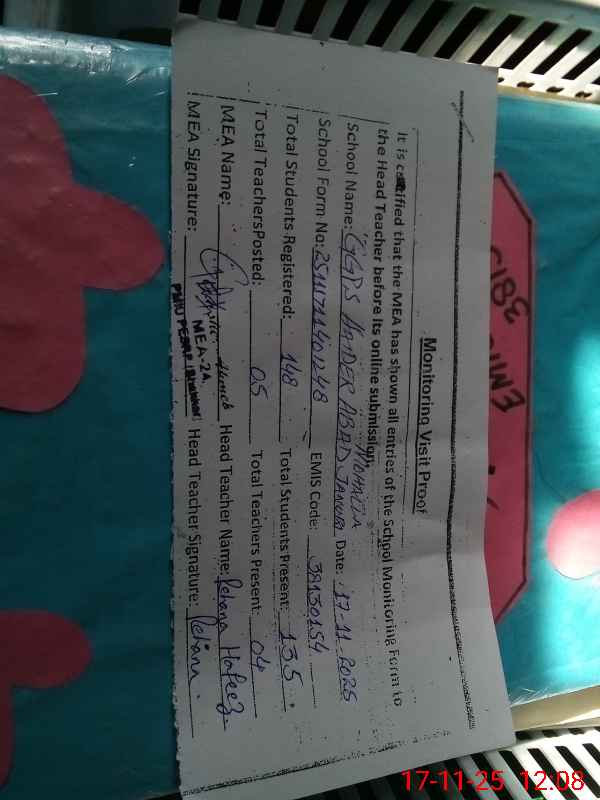 Monitoring Visit Proof
It is certified that the MEA has shown all entries of the School Monitoring Form to
the Head Teacher before its online submission.
School Name: GGPS HAIDER ABAD JANUBI MOHALLA Date: 17-11-2025
School Form No: EMIS Code: 38130154
Total Students Registered: 148 Total Students Present: 135
Total Teachers Posted: 05 Total Teachers Present: 04
MEA Name: Head Teacher Name: Rehana Hafeez
MEA Signature: Head Teacher Signature: Rehana
MEA-24
EMIS
3813
17-11-25 12:08